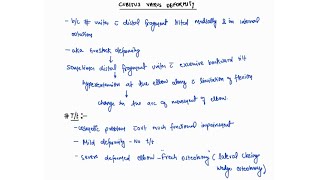 CUBITUS VARUS DEFORMITY
- b/c # unites c distal fragment tilted medially & in internal
rotation
- aka Gunstock deformity
Sometimes distal fragment unites c excessive backward tilt
↓
hyperextension at the elbow along c limitation of flexion
↓
change in the arc of movement of elbow
# T/t :-
- Cosmetic problem (not much functional impairment
- Mild deformity - No t/t
- Severe deformed elbow - French osteotomy (lateral closing
wedge osteotomy)